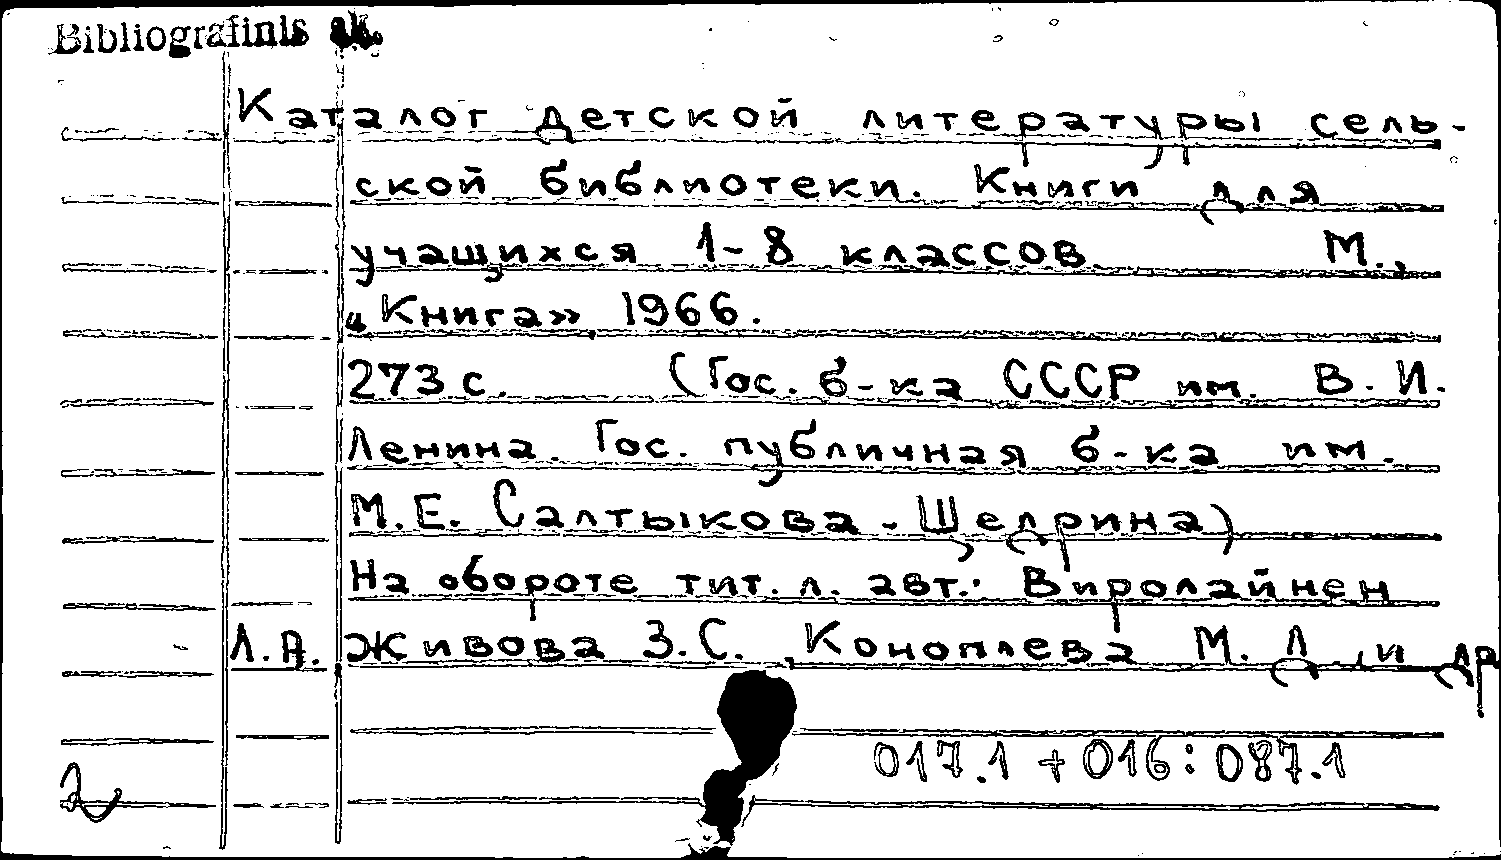 Bibliografinis sk.
Каталог детской литературы сель-
ской библиотеки. Книги для
учащихся 1-8 классов. М.,
"Книга», 1966.
273 с. (Гос. б-ка СССР им. В. И.
Ленина. Гос. публичная б-ка им.
М. Е. Салтыкова-Щедрина)
На обороте тит. л. авт.: Виролайнен
Л. А. Живова З. С., Коноплева М. Д., и др
017.1 + 016:087.1
2